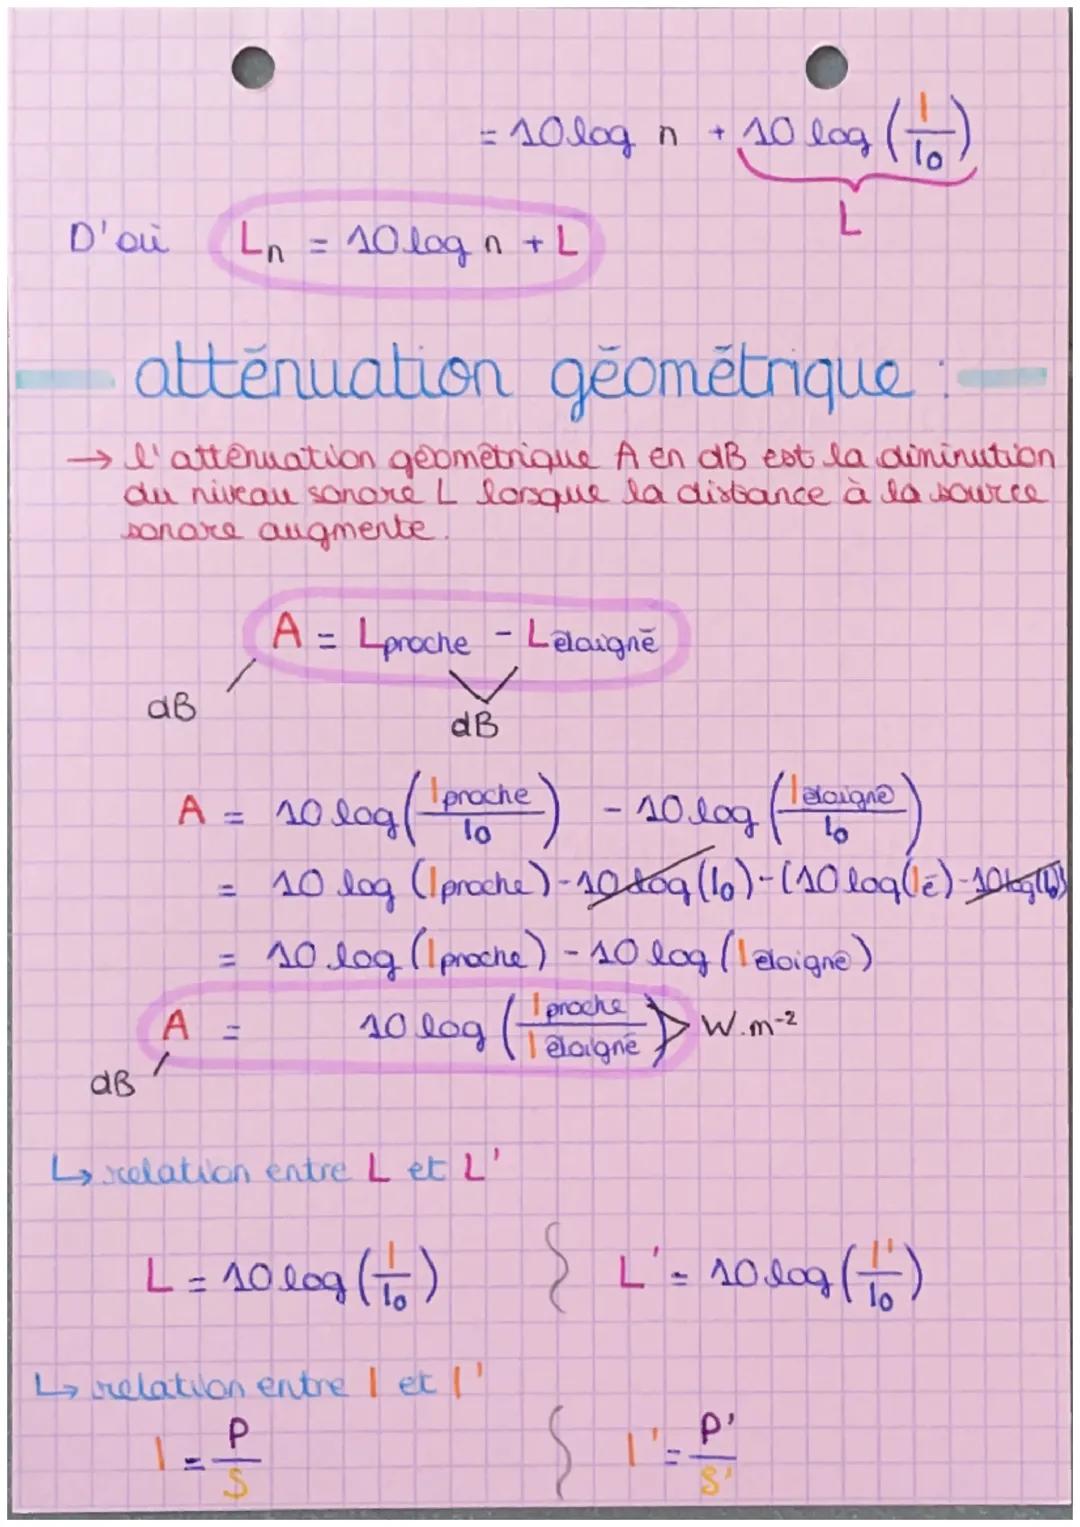 = 10 log n + 10 log (I/I₀)
L
D'où Lₙ = 10 log n + L
atténuation géométrique :
→ l'atténuation géométrique A en dB est la diminution
du niveau sonore L lorsque la distance à la source
sonore augmente.
A = Lproche - Léloigné
dB
dB
A = 10 log (Iproche/I₀) - 10 log (Iéloigné/I₀)
= 10 log (Iproche) - 10 log (I₀) - (10 log(Ié) - 10 log(I₀))
= 10 log (Iproche) - 10 log (Iéloigné)
A = 10 log (Iproche/Iéloigné) > W.m⁻²
dB
↳ relation entre L et L'
L = 10 log (I/I₀) L' = 10 log (I'/I₀)
↳ relation entre I et I'
I = P/S I' = P'/S'